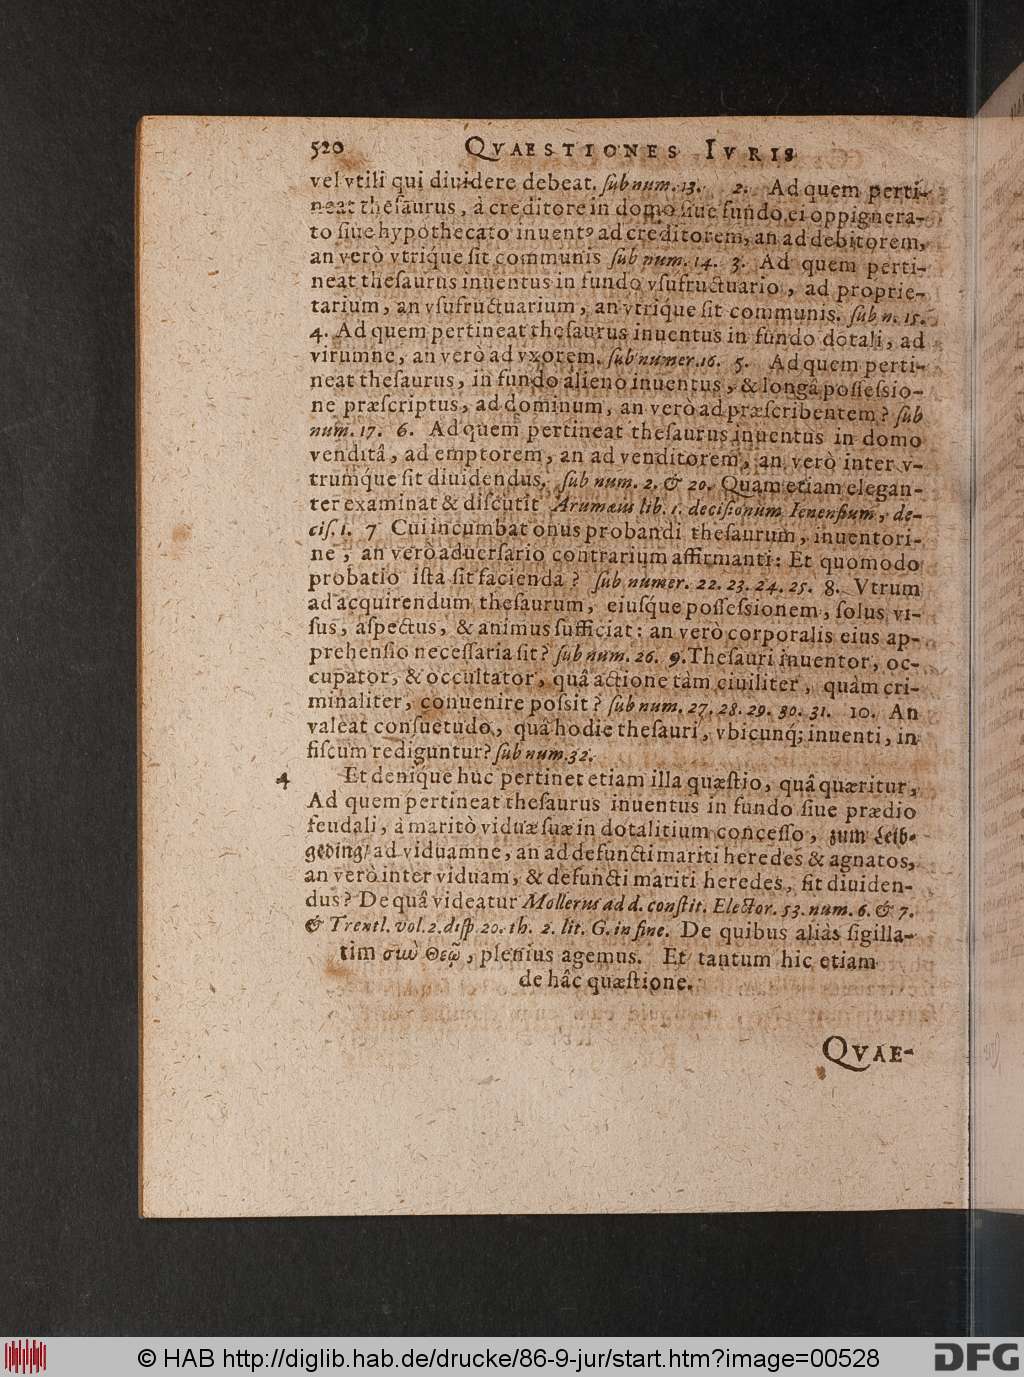 520 QVAESTIONES IVRIS
vel vtili qui diuidere debeat. ſub num. 13. 2. Ad quem perti-
neat theſaurus, à creditore in domo ſiue fundo, ei oppignera-
to ſiue hypothecato inuentꝰ ad creditorem, an ad debitorem,
an verò vtrique ſit communis ſub num. 14. 3. Ad quem perti-
neat theſaurus inuentus in fundo vſufructuario, ad proprie-
tarium, an vſufructuarium, an vtriq́ue ſit communis. ſub n. 15.
4. Ad quem pertineat theſaurus inuentus in fundo dotali, ad
virumne, an verò ad vxorem. ſub numer. 16. 5. Ad quem perti-
neat theſaurus, in fundo alieno inuentus, & longâ poſſeſsio-
ne præſcriptus, ad dominum, an verò ad præſcribentem? ſub
num. 17. 6. Ad quem pertineat theſaurus inuentus in domo
venditâ, ad emptorem, an ad venditorem, an verò inter v-
trumq́ue ſit diuidendus, ſub num. 2. & 20. Quam etiam elegan-
ter examinat & diſcutit Arumæus lib. 1. deciſionum Ienenſium, de-
ciſ. 1. 7 Cui incumbat onus probandi theſaurum, inuentori-
ne, an verò aduerſario contrarium affirmanti: Et quomodo
probatio iſta ſit facienda? ſub numer. 22. 23. 24. 25. 8. Vtrum
ad acquirendum theſaurum, eiuſq́ue poſſeſsionem, ſolus vi-
ſus, aſpectus, & animus ſufficiat: an verò corporalis eius ap-
prehenſio neceſſaria ſit? ſub num. 26. 9. Theſauri inuentor, oc-
cupator, & occultator, quâ actione tàm ciuiliter, quàm cri-
minaliter, conuenire poſsit? ſub num. 27. 28. 29. 30. 31. 10. An
valeat conſuetudo, quâ hodie theſauri, vbicunq́; inuenti, in
fiſcum rediguntur? ſub num. 32.
4 Et denique huc pertinet etiam illa quæſtio, quâ quæritur,
Ad quem pertineat theſaurus inuentus in fundo ſiue prædio
feudali, à maritò viduæ ſuæ in dotalitium conceſſo, zum Leib-
geding/ ad viduamne, an ad defuncti mariti heredes & agnatos,
an verò inter viduam, & defuncti mariti heredes, ſit diuiden-
dus? De quâ videatur Mollerus ad d. conſtit. Elector. 53. num. 6. & 7.
& Trentl. vol. 2. diſp. 20. th. 2. lit. G. in fine. De quibus aliàs ſigilla-
tim σιιὼ Θεῷ, plenius agemus. Et tantum hic etiam
de hâc quæſtione.
QVAE-
© HAB http://diglib.hab.de/drucke/86-9-jur/start.htm?image=00528
DFG